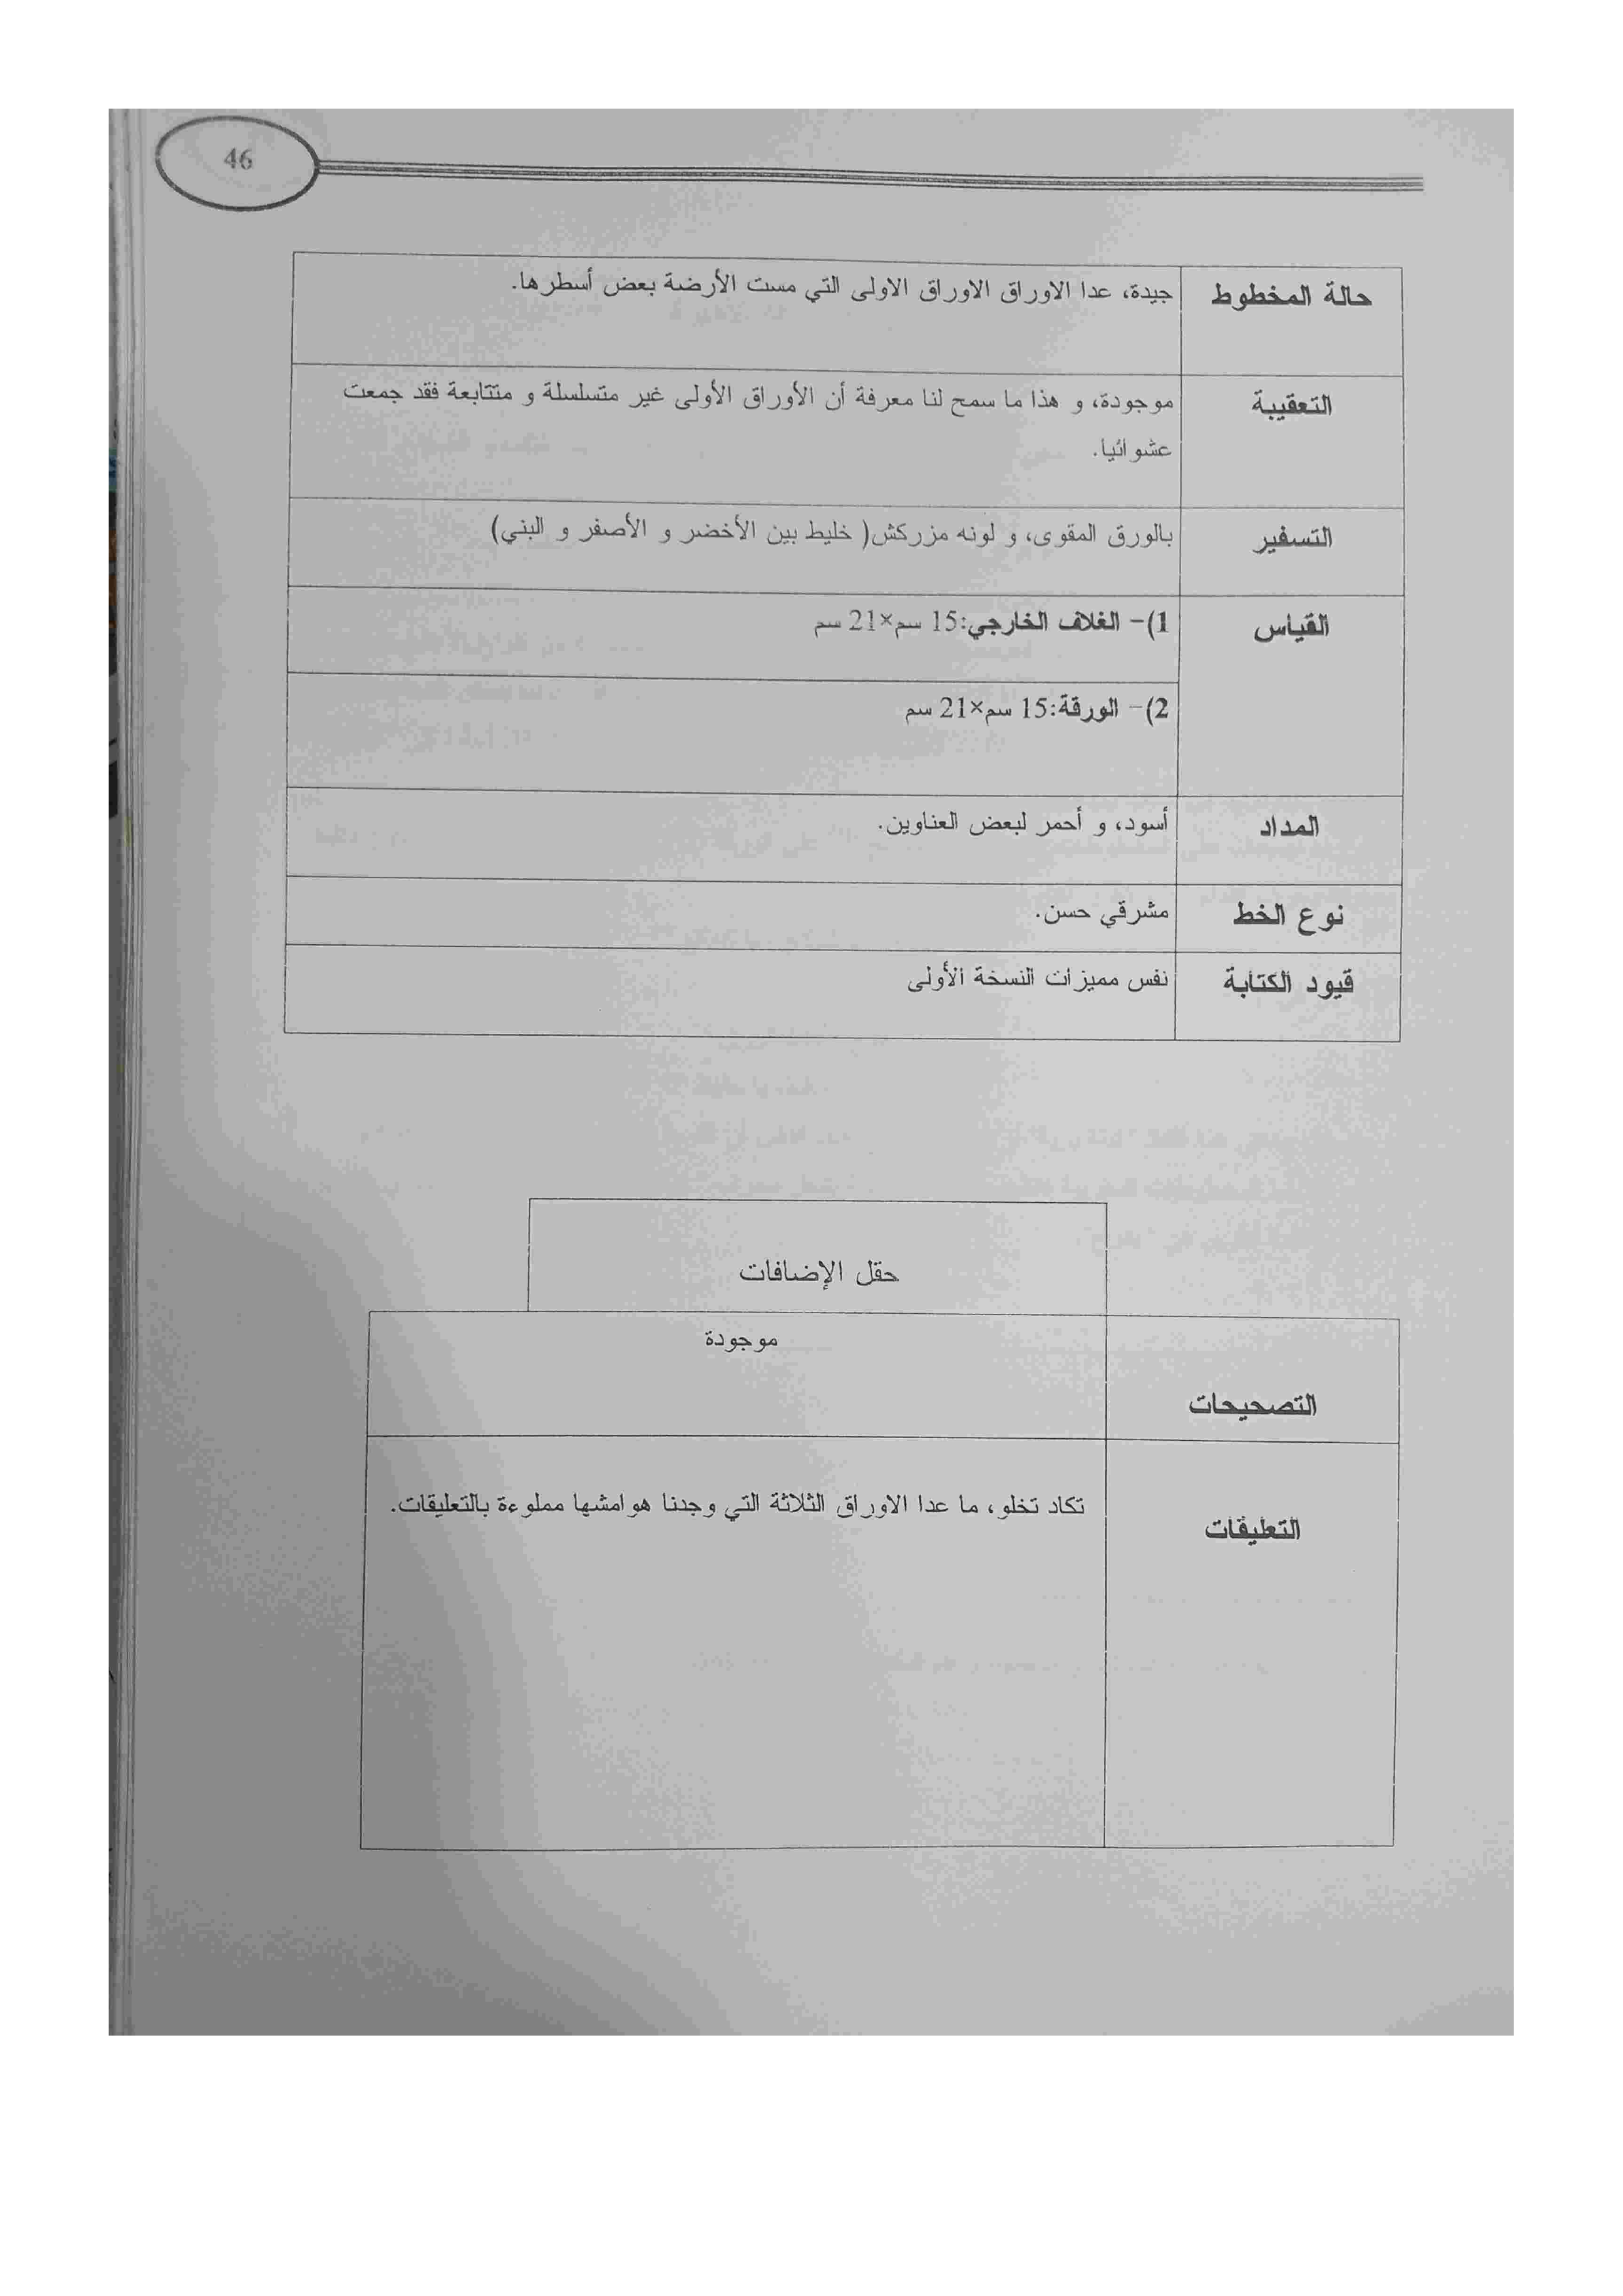 46
حالة المخطوط
جيدة، عدا الاوراق الاوراق الاولى التي مست الأرضة بعض أسطرها.
التعقيبة
موجودة، و هذا ما سمح لنا معرفة أن الأوراق الأولى غير متسلسلة و متتابعة فقد جمعت
عشوائيا.
التسفير
بالورق المقوى، و لونه مزركش( خليط بين الأخضر و الأصفر و البني)
القياس
1)- الغلاف الخارجي:15 سم×21 سم
2)- الورقة:15 سم×21 سم
المداد
أسود، و أحمر لبعض العناوين.
نوع الخط
مشرقي حسن.
قيود الكتابة
نفس مميزات النسخة الأولى
حقل الإضافات
موجودة
التصحيحات
تكاد تخلو، ما عدا الاوراق الثلاثة التي وجدنا هوامشها مملوءة بالتعليقات.
التعليقات